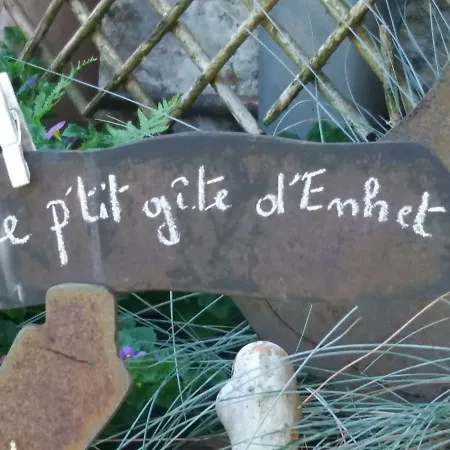 e p'tit gîte d'Enhet